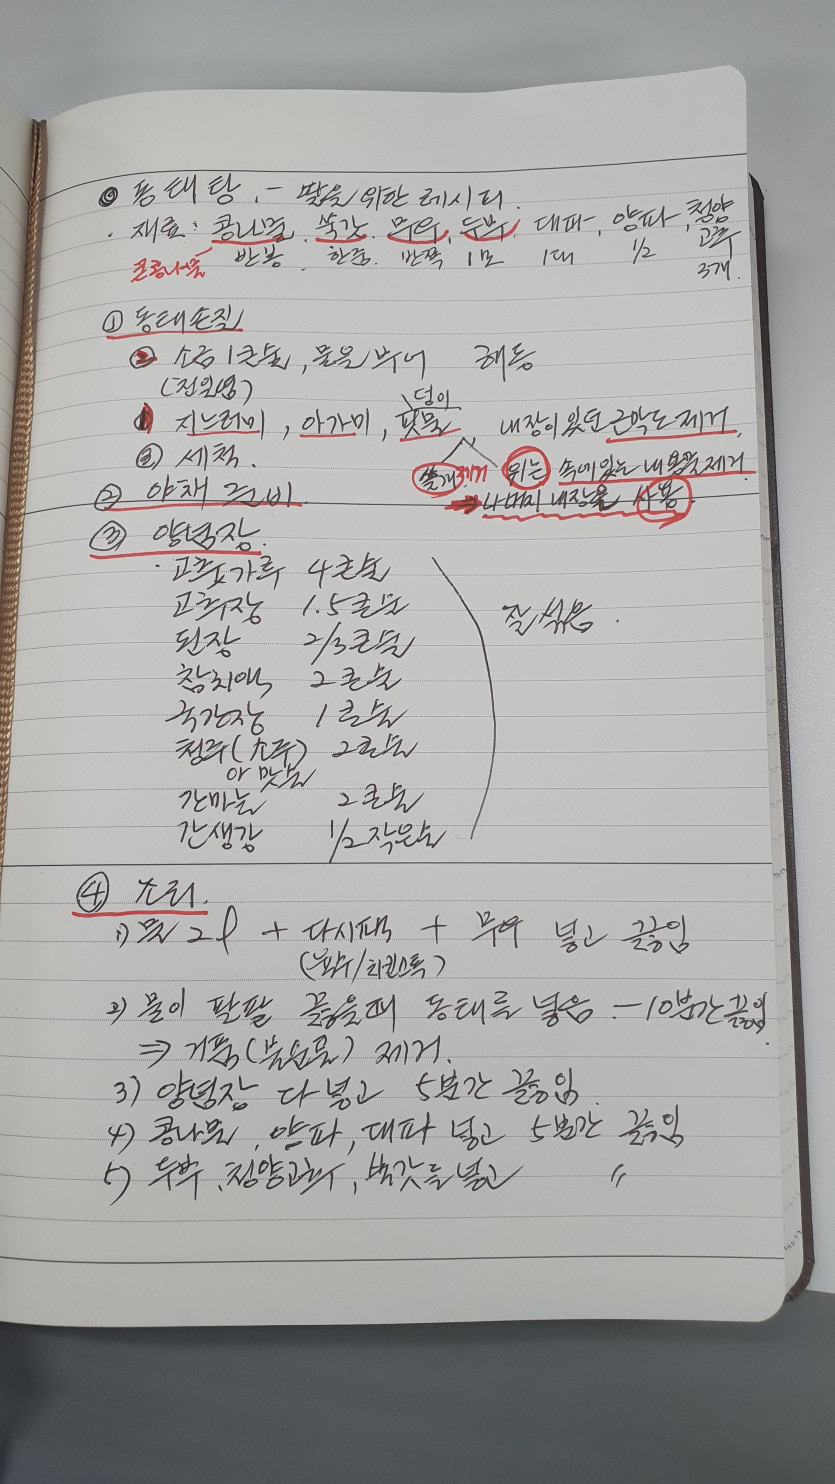 ◎ 동태탕 - 딸을 위한 레시피.
· 재료: 콩나물, 쑥갓, 무우, 두부, 대파, 양파, 청양고추
콩나물 반봉 한줌 반쪽 1모 1대 1/2 3개.
① 동태손질
② 소금 1큰술, 물을 부어 해동
(전날밤)
① 지느러미, 아가미, 핏물 덩이 내장이 있던 근막도 제거.
③ 세척. 쓸개 제거 위는 속에있는 내용물 제거.
② 야채 준비 → 나머지 내장은 사용
③ 양념장.
· 고추가루 4큰술
고추장 1.5큰술 잘 섞음.
된장 2/3큰술
참치액 2큰술
국간장 1큰술
청주(소주) 2큰술
or 맛술
간마늘 2큰술
간생강 1/2 작은술
④ 조리.
1) 물 2ℓ + 다시팩 + 무우 넣고 끓임
(육수/치킨스톡)
2) 물이 팔팔 끓을때 동태를 넣음 - 10분간 끓임.
⇒ 거품(불순물) 제거.
3) 양념장 다 넣고 5분간 끓임.
4) 콩나물, 양파, 대파 넣고 5분간 끓임
5) 두부, 청양고추, 쑥갓을 넣고 〃